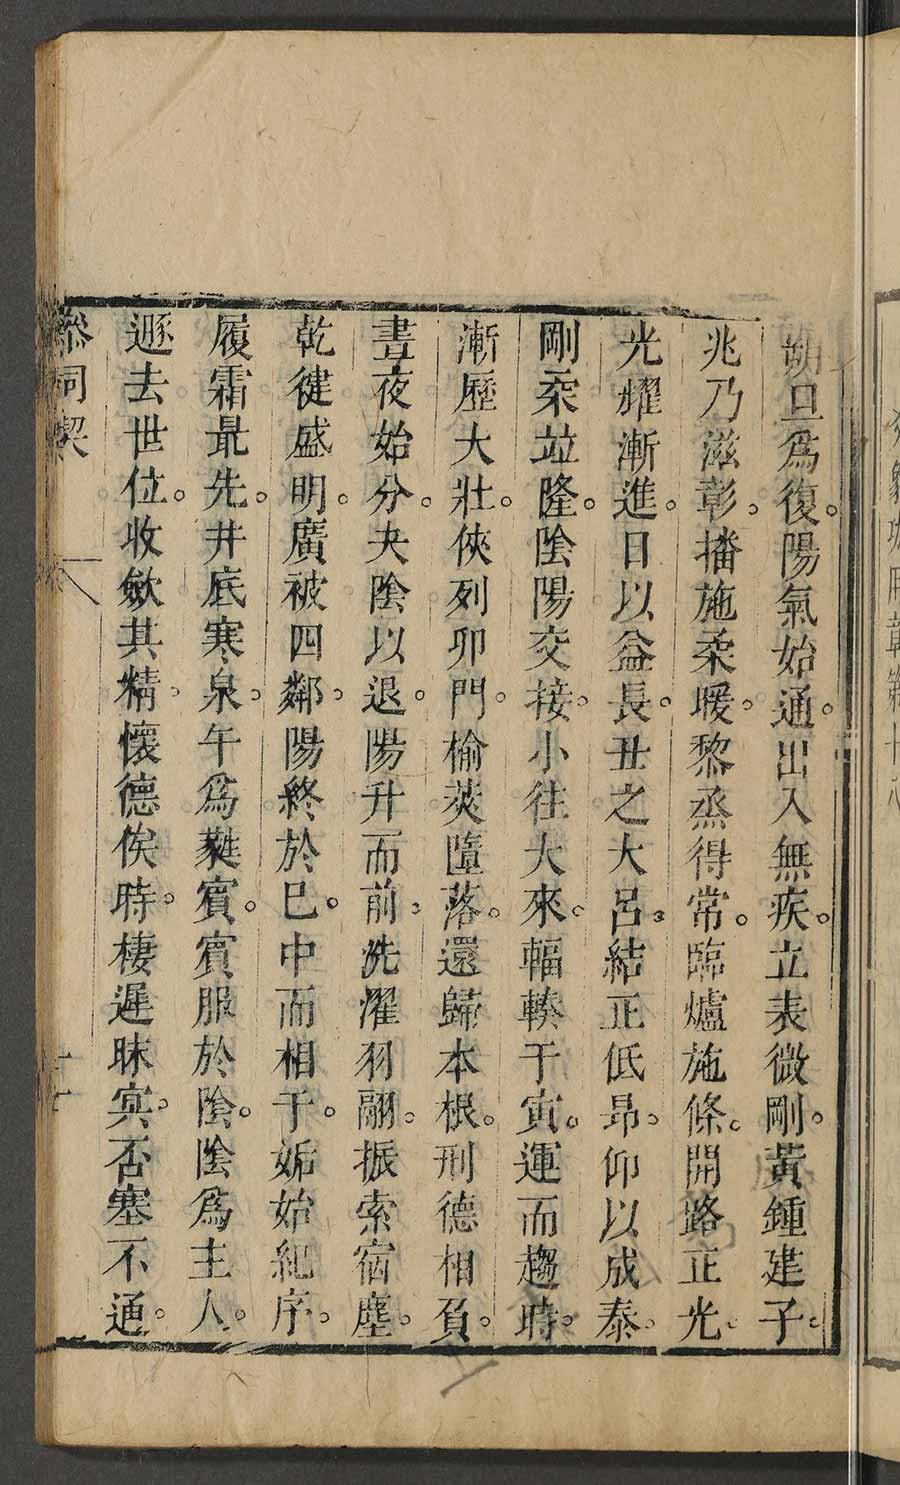 朔旦爲復。陽氣始通。出入無疾。立表微剛。黃鍾建子。
兆乃滋彰。播施柔暖。黎烝得常。臨爐施條。開路正光。
光耀漸進。日以益長。丑之大呂。結正低昂。仰以成泰。
剛柔竝隆。陰陽交接。小往大來。輻輳于寅。運而趨時。
漸歷大壯。俠列卯門。榆莢墮落。還歸本根。刑德相負。
晝夜始分。夬陰以退。陽升而前。洗濯羽翮。振索宿塵。
乾健盛明。廣被四鄰。陽終於巳。中而相干。姤始紀序。
履霜最先。井底寒泉。午爲蕤賓。賓服於陰。陰爲主人。
遯去世位。收斂其精。懷德俟時。棲遲昧冥。否塞不通。
參同契